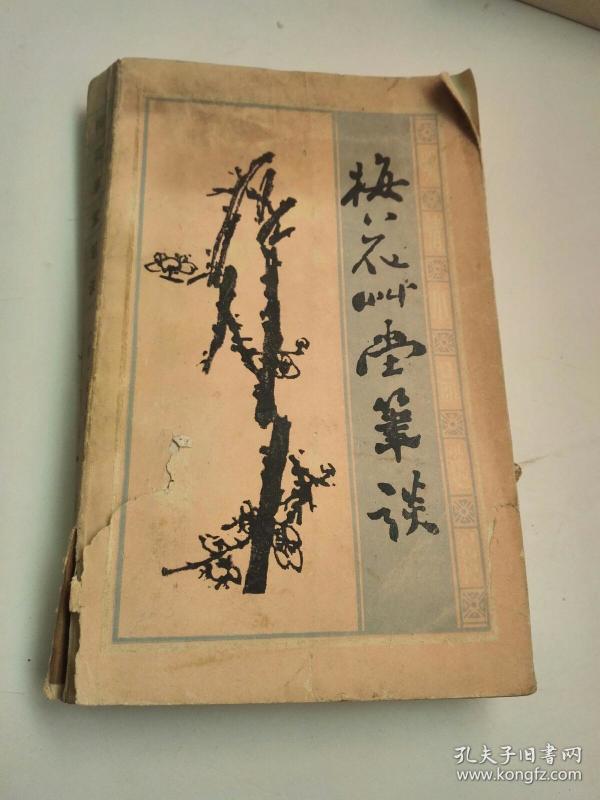 梅花艸堂筆談
孔夫子旧書网
www.kongfz.com